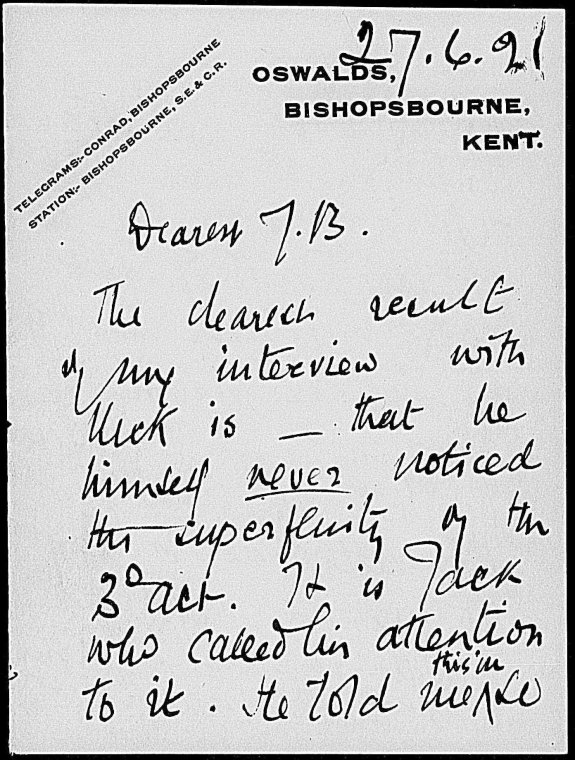 27.6.21
OSWALDS,
BISHOPSBOURNE,
KENT.
TELEGRAMS:- CONRAD, BISHOPSBOURNE
STATION:- BISHOPSBOURNE, S.E. & C.R.
Dearest J.B.
The clearest result
of my interview with
is — that he
himself never noticed
the superfluity of the
3d act. It is Jack
who called his attention
to it. He told me this in so